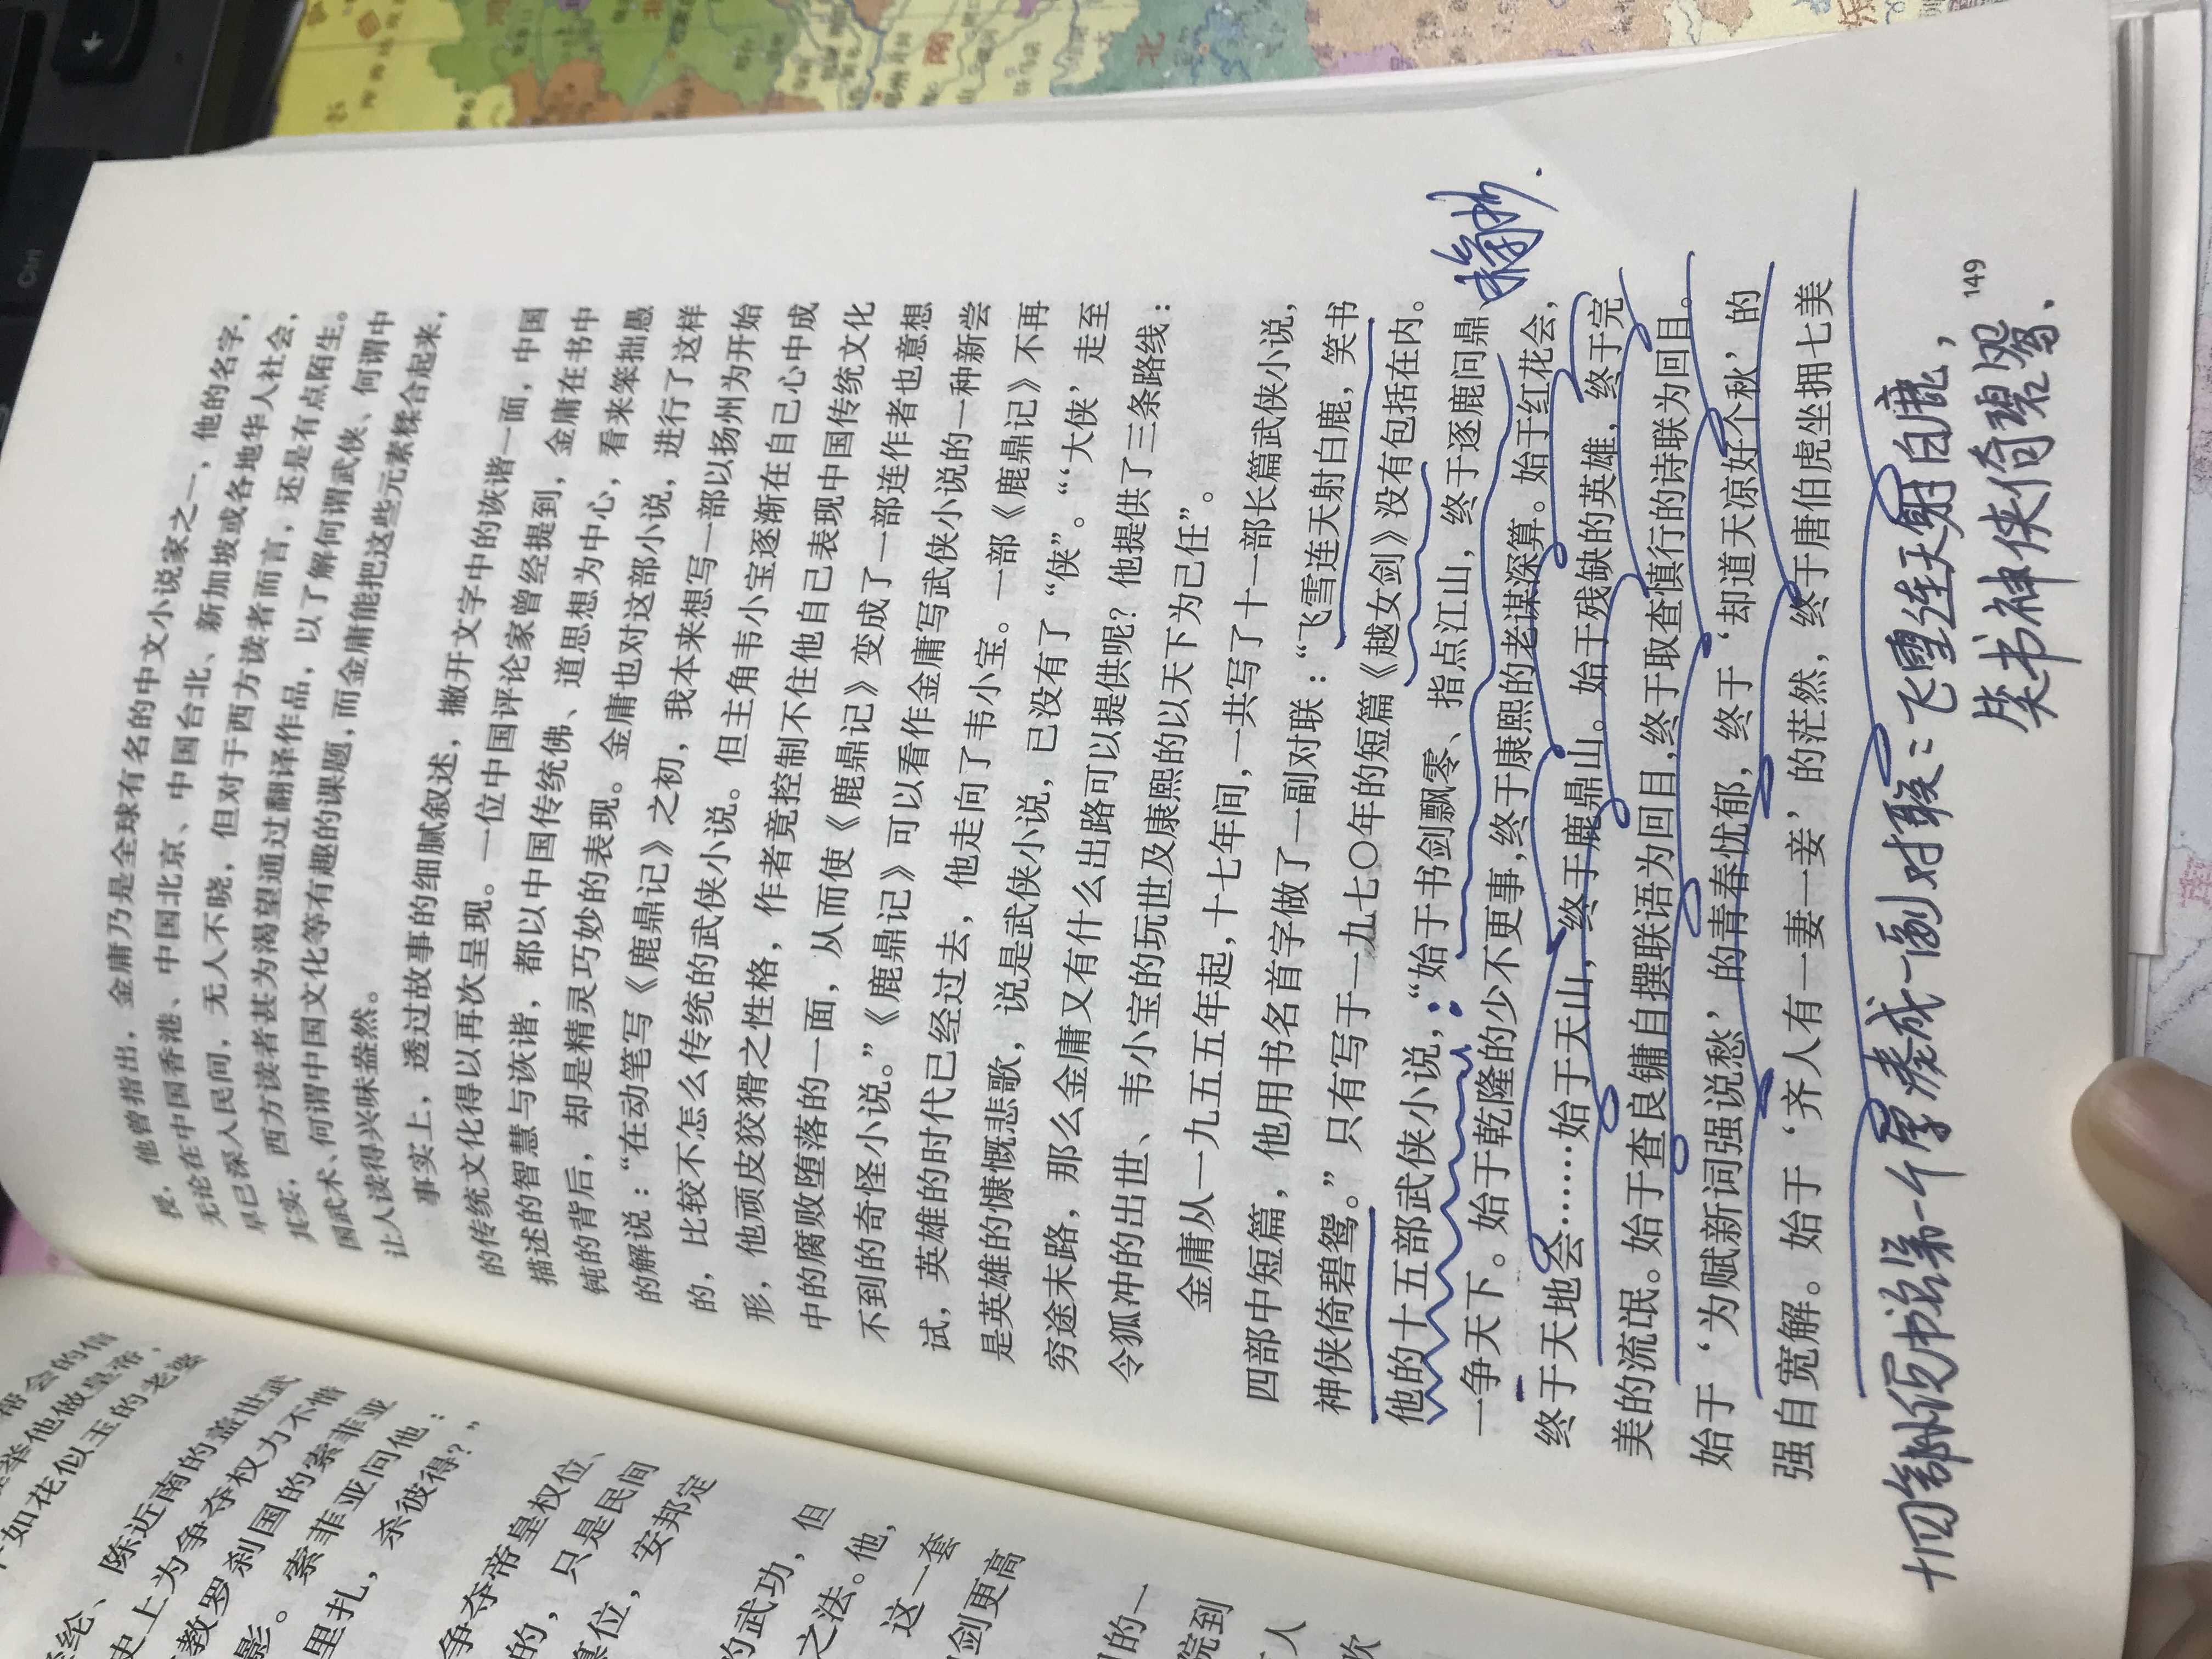 授，他曾指出，金庸乃是全球有名的中文小说家之一，他的名字，
无论在中国香港、中国北京、中国台北、新加坡或各地华人社会，
早已深入民间，无人不晓，但对于西方读者而言，还是有点陌生。
其实，西方读者甚为渴望通过翻译作品，以了解何谓武侠、何谓中
国武术、何谓中国文化等有趣的课题，而金庸能把这些元素糅合起来，
让人读得兴味盎然。
事实上，透过故事的细腻叙述，撇开文字中的诙谐一面，中国
的传统文化得以再次呈现。一位中国评论家曾经提到，金庸在书中
描述的智慧与诙谐，都以中国传统佛、道思想为中心，看来笨拙愚
钝的背后，却是精灵巧妙的表现。金庸也对这部小说，进行了这样
的解说：“在动笔写《鹿鼎记》之初，我本来想写一部以扬州为开始
的，比较不怎么传统的武侠小说。但主角韦小宝逐渐在自己心中成
形，他顽皮狡猾之性格，作者竟控制不住他自己表现中国传统文化
中的腐败堕落的一面，从而使《鹿鼎记》变成了一部连作者也意想
不到的奇怪小说。”《鹿鼎记》可以看作金庸写武侠小说的一种新尝
试，英雄的时代已经过去，他走向了韦小宝。一部《鹿鼎记》不再
是英雄的慷慨悲歌，说是武侠小说，已没有了“侠”。“‘大侠’走至
穷途末路，那么金庸又有什么出路可以提供呢？他提供了三条路线：
令狐冲的出世、韦小宝的玩世及康熙的以天下为己任”。
金庸从一九五五年起，十七年间，一共写了十一部长篇武侠小说，
四部中短篇，他用书名首字做了一副对联：“飞雪连天射白鹿，笑书
神侠倚碧鸳。”只有写于一九七〇年的短篇《越女剑》没有包括在内。
他的十五部武侠小说，“始于书剑飘零、指点江山，终于逐鹿问鼎、
一争天下。始于乾隆的少不更事，终于康熙的老谋深算。始于红花会，
终于天地会……始于天山，终于鹿鼎山。始于残缺的英雄，终于完
美的流氓。始于查良镛自撰联语为回目，终于取查慎行的诗联为回目。
始于‘为赋新词强说愁’的青春忧郁，终于‘却道天凉好个秋’的
强自宽解。始于‘齐人有一妻一妾’的茫然，终于唐伯虎坐拥七美
摘抄.
149
十四部小说书名第一个字凑成一副对联：飞雪连天射白鹿，
笑书神侠倚碧鸳、
帮会的信
举他做皇帝，
如花似玉的老婆
陈近南的盖世武
史上为争夺权力不惜
教罗刹国的索菲亚
影。索菲亚问他：
里扎，杀彼得？”
争夺帝皇权位、
的，只是民间
位，安邦定
的武功，但
之法。他，
这一套
剑更高
的一
院到
人